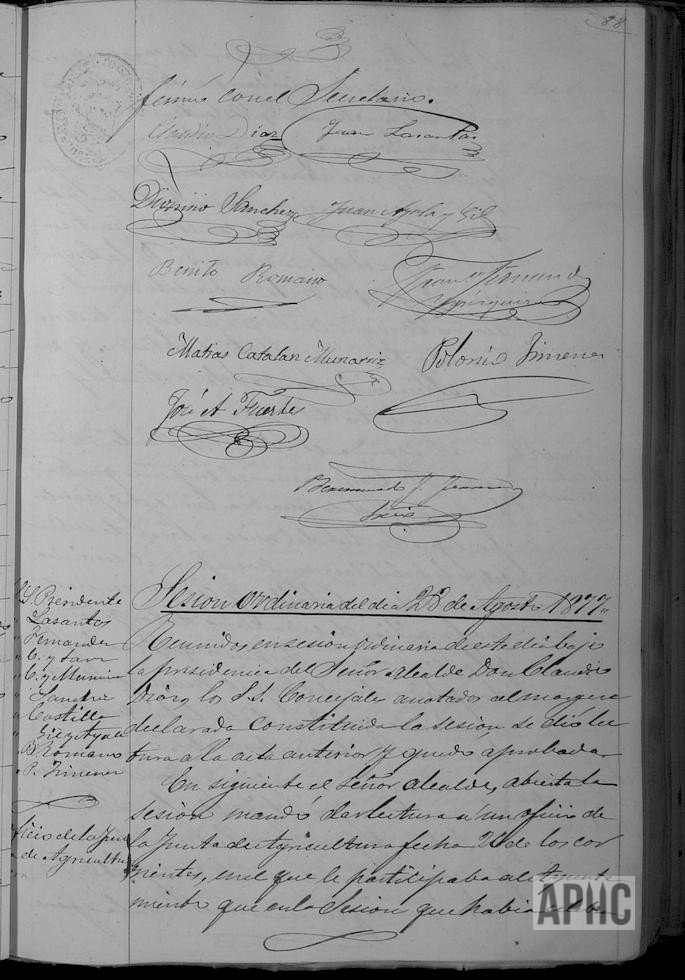 88
firmó con el Secretario.
Claudio Diaz Juan Lasantas
Dionisio Sanchez Juan Ayala y Gil
Benito Romano
Fernandez
Matias Catalan Munarriz Polonio Jimenez
José A Fuerte
Srio
Sesion Ordinaria del dia 28 de Agosto 1877.
S. Presidente
Lasantas
Fernandez
C. y
C. y Munarriz
Sanchez
Castillo
Gil y Ayala
B Romano
P. Jimenez
Reunidos en sesion ordinaria de este dia bajo
la presidencia del Señor Alcalde Don Claudio
Diaz y los S.S. Concejales anotados al margen
declarada constituida la sesion se dió lec
tura a la acta anterior y quedó aprobada
En siguiente el señor alcalde, abierta la
sesion mandó dar lectura a un oficio de
la Junta de Agricultura fecha 26 de los cor
rientes, en el que le participaba al Ayunta
miento que en la Sesion que habia
oficio de la Junta
de Agricultura
APHC